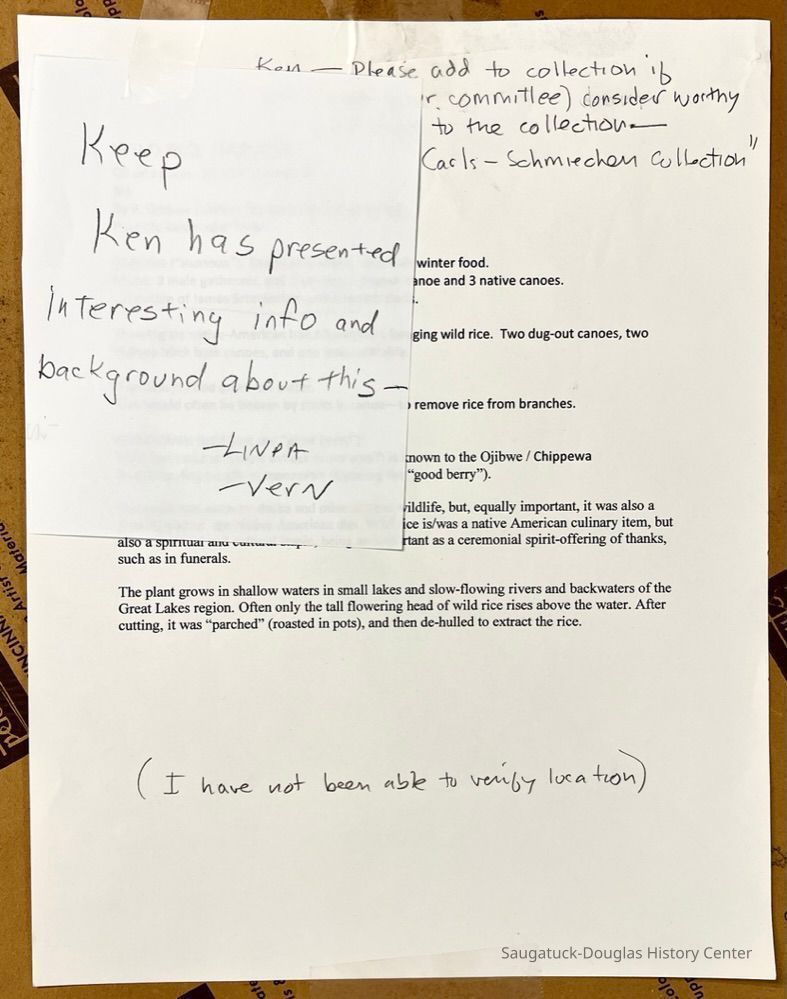 Ken — Please add to collection if
r committee) consider worthy
to the collection —
Carls - Schmiechen Collection"
Keep
Ken has presented
interesting info and
background about this —
- LINDA
- Vern
winter food.
anoe and 3 native canoes.
ging wild rice. Two dug-out canoes, two
remove rice from branches.
nown to the Ojibwe / Chippewa
"good berry").
ildlife, but, equally important, it was also a
ice is/was a native American culinary item, but
also a spiritual and rtant as a ceremonial spirit-offering of thanks,
such as in funerals.
The plant grows in shallow waters in small lakes and slow-flowing rivers and backwaters of the
Great Lakes region. Often only the tall flowering head of wild rice rises above the water. After
cutting, it was "parched" (roasted in pots), and then de-hulled to extract the rice.
(I have not been able to verify location)
Saugatuck-Douglas History Center